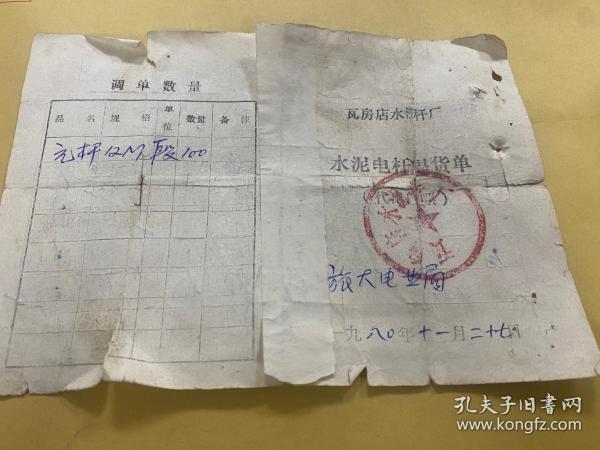 调单数量
品名 规格 单位 数量 备注
元杆 12M 段 100
瓦房店水泥杆厂
水泥电杆提货单
旅大电业局
一九八〇年十一月二十七日
孔夫子旧书网
www.kongfz.com